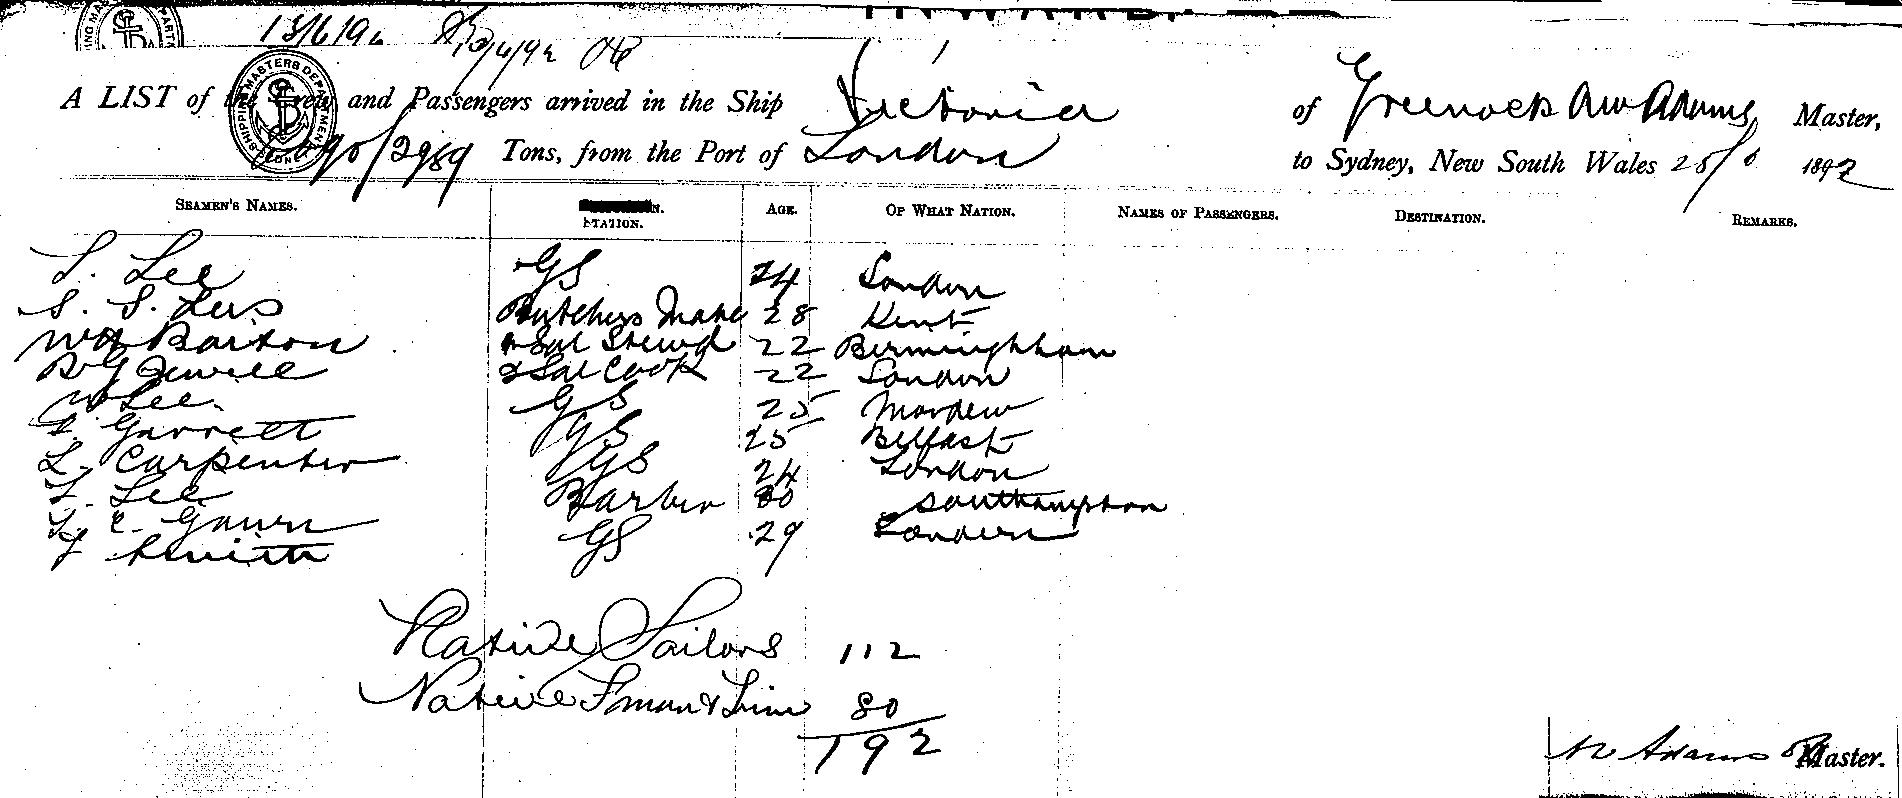 13/6/92
A LIST of the Crew and Passengers arrived in the Ship Victoria of Greenock AW Adams Master,
/2989 Tons, from the Port of London to Sydney, New South Wales 25/6 1892
SEAMEN'S NAMES. STATION. AGE. OF WHAT NATION. NAMES OF PASSENGERS. DESTINATION. REMARKS.
Lee GS 24 London
S. S. Butchers Mate 28 Kent
Wm Barton Sal Stewd 22 Birminghham
Jewell 2 Sal Cook 22 London
W Lee GS 25
Garrett GS 25 Belfast
L. Carpenter GS 24 London
Lee Barber 30 Southampton
E. GS 29 London
Smith
Native Sailors 112
Native Fman & Trim 80
192
Adams Master.